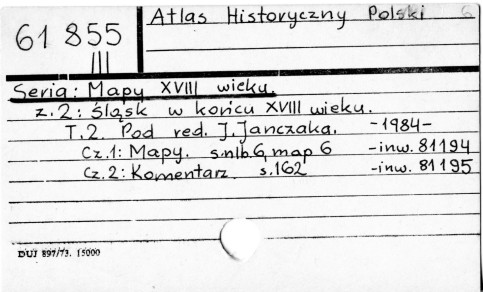 Atlas Historyczny Polski 6
61 855
III
Seria: Mapy XVIII wieku.
z.2: Śląsk w końcu XVIII wieku.
T.2. Pod red. J. Janczaka. -1984-
Cz.1: Mapy. s.nlb.6, map 6 -inw. 81194
Cz.2: Komentarz. s.162 -inw. 81195
DUJ 897/73. 15000